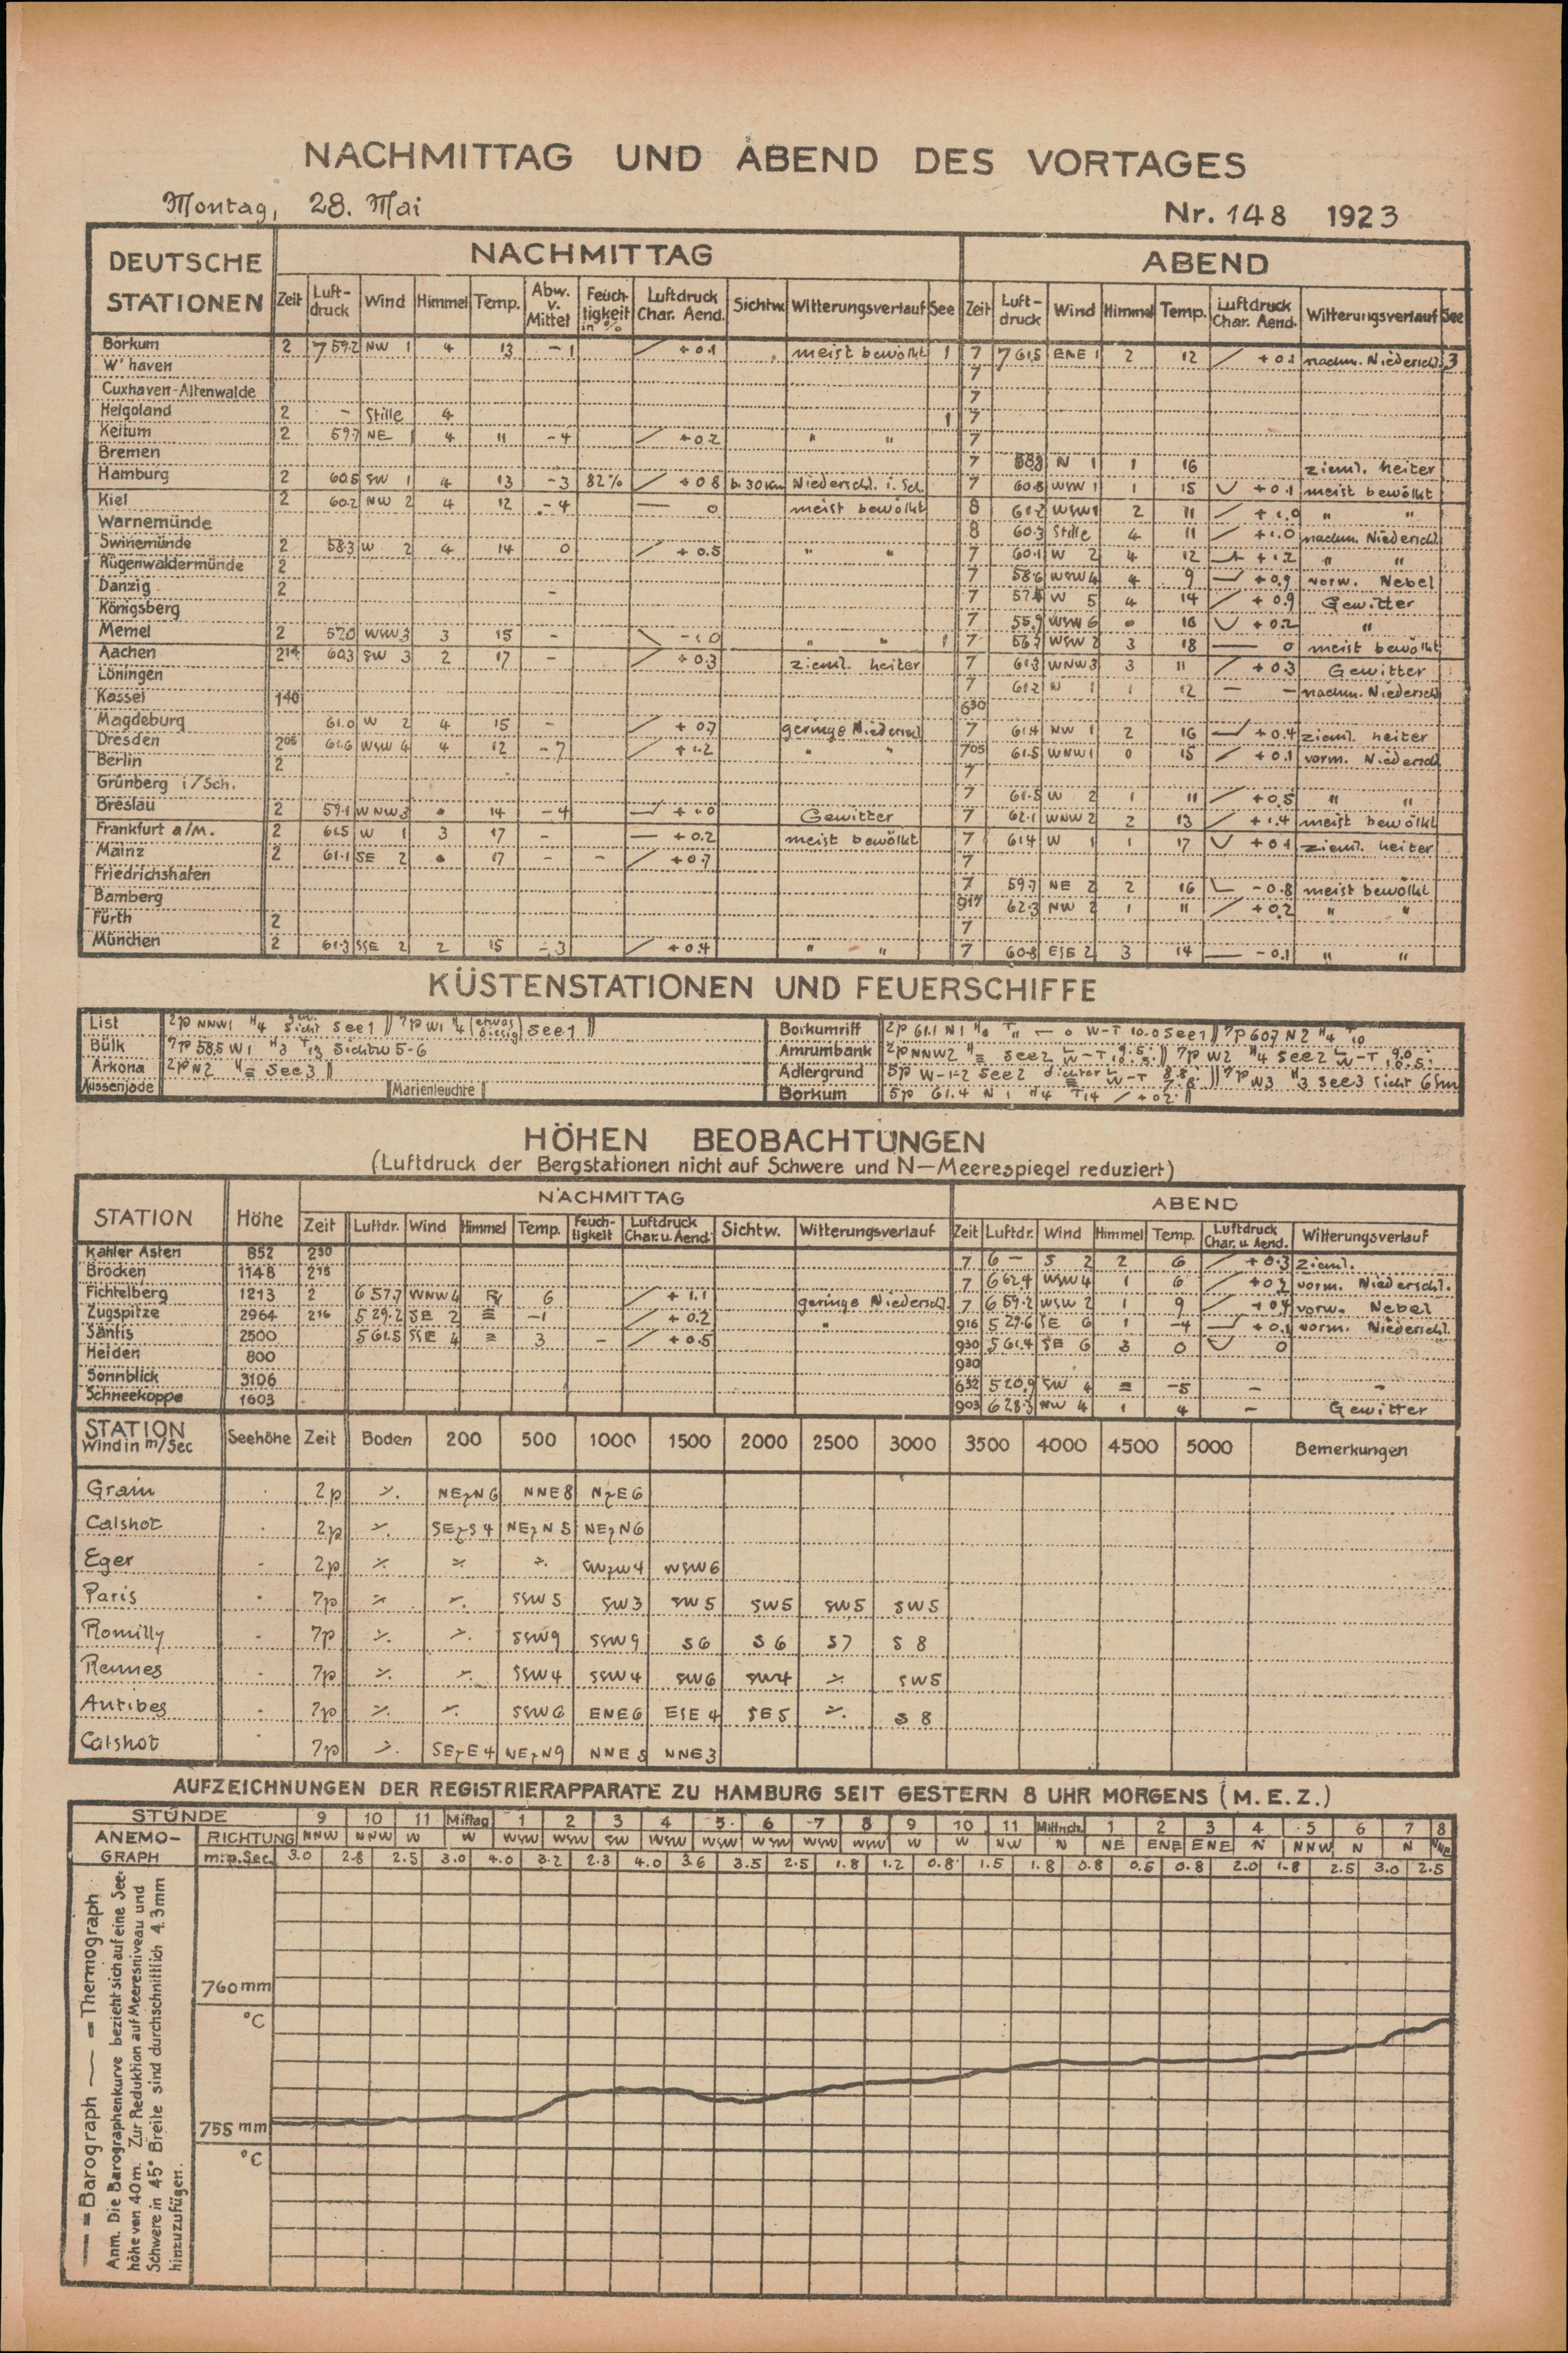 NACHMITTAG UND ABEND DES VORTAGES
Montag, 28. Mai Nr. 148 1923
DEUTSCHE STATIONEN NACHMITTAG ABEND
Zeit Luft-druck Wind Himmel Temp. Abw. v. Mittel Feuch-tigkeit in % Luftdruck Char. Aend. Sichtw. Witterungsverlauf See Zeit Luft-druck Wind Himmel Temp. Luftdruck Char. Aend. Witterungsverlauf See
Borkum 2 759.2 NW 1 4 13 -1 +0.1 meist bewölkt 1 7 761.5 ENE 1 2 12 +0.1 nachm. Niederschl. 3
W'haven 7
Cuxhaven-Altenwalde 7
Helgoland 2 - Stille 4 1 7
Keitum 2 59.7 NE 1 4 11 -4 +0.2 " " 7
Bremen 7 N 1 1 16 zieml. heiter
Hamburg 2 60.5 SW 1 4 13 -3 82% +0.8 b. 30 Km Niederschl. i. Sch. 7 60.8 WSW 1 1 15 +0.1 meist bewölkt
Kiel 2 60.2 NW 2 4 12 -4 0 meist bewölkt 8 61.2 WSW 1 2 11 +1.0 " "
Warnemünde 8 60.3 Stille 4 11 +1.0 nachm. Niederschl.
Swinemünde 2 58.3 W 2 4 14 0 +0.5 " " 7 60.1 W 2 4 12 +1.2 " "
Rügenwaldermünde 2 7 58.6 WSW 4 4 9 +0.9 vorw. Nebel
Danzig 2 - 7 W 5 4 14 +0.9 Gewitter
Königsberg 7 55.9 WSW 6 16 +0.2 "
Memel 2 57.0 WSW 3 3 15 - -1.0 " " 1 7 WSW 2 3 18 0 meist bewölkt
Aachen 2 14 60.3 SW 3 2 17 - +0.3 zieml. heiter 7 61.3 WNW 3 3 11 +0.3 Gewitter
Löningen 7 61.2 N 1 1 12 - - nachm. Niederschl.
Kassel 1 40 6 30
Magdeburg 61.0 W 2 4 15 - +0.7 geringe Niederschl. 7 61.4 NW 1 2 16 +0.4 zieml. heiter
Dresden 2 05 61.6 WSW 4 4 12 -7 +1.2 " " 7 05 61.5 WNW 1 0 15 +0.1 vorm. Niederschl.
Berlin 2 7
Grünberg i/Sch. 7 61.5 W 2 1 11 +0.5 " "
Breslau 2 59.1 WNW 3 14 -4 +1.0 Gewitter 7 62.1 WNW 2 2 13 +1.4 meist bewölkt
Frankfurt a/M. 2 61.5 W 1 3 17 - +0.2 meist bewölkt 7 61.4 W 1 1 17 +0.1 zieml. heiter
Mainz 2 61.1 SE 2 17 - - +0.7 7
Friedrichshafen 7 59.7 NE 2 2 16 -0.8 meist bewölkt
Bamberg 9 17 62.3 NW 2 1 11 +0.2 " "
Fürth 2 7
München 2 61.3 SSE 2 2 15 -3 +0.4 " " 7 60.8 ESE 2 3 14 -0.1 " "
KÜSTENSTATIONEN UND FEUERSCHIFFE
List 2p NNW1 H4 Sicht See 1 || 7p W1 H4 (etwas diesig) See 1 ||
Bülk 7p 58.5 W1 H3 T13 Sichtw 5-6
Arkona 2p N2 H≡ See 3 ||
Aussenjade Marienleuchte
Borkumriff 2p 61.1 N1 — 0 W-T 10.0 See 1 || 7p 60.7 N2 H4 T10
Amrumbank 2p NNW2 H≡ See 2 || 7p W2 H4 See 2
Adlergrund 5p W-1-2 See 2 dichter || 7p W3 H3 See 3 Sicht 6 Sm
Borkum 5p 61.4 N1 H4 T14 +02 ||
HÖHEN BEOBACHTUNGEN
(Luftdruck der Bergstationen nicht auf Schwere und N-Meerespiegel reduziert)
STATION Höhe NACHMITTAG ABEND
Zeit Luftdr. Wind Himmel Temp. Feuch-tigkeit Luftdruck Char. u. Aend. Sichtw. Witterungsverlauf Zeit Luftdr. Wind Himmel Temp. Luftdruck Char. u. Aend. Witterungsverlauf
Kahler Asten 852 2 30 7 6 — S 2 2 6 +0.3 zieml.
Brocken 1148 2 15 7 662.4 WSW 4 1 6 +0.2 vorm. Niederschl.
Fichtelberg 1213 2 657.7 WNW 4 6 +1.1 geringe Niederschl. 7 659.2 WSW 2 1 9 +0.4 vorw. Nebel
Zugspitze 2964 2 16 529.2 SE 2 ≡ -1 +0.2 " 9 16 529.6 SE 6 1 -4 +0.1 vorm. Niederschl.
Säntis 2500 561.5 SSE 4 = 3 - +0.5 9 30 561.4 SE 6 3 0 0
Heiden 800 9 30
Sonnblick 3106 6 32 520.9 SW 4 = -5 - -
Schneekoppe 1603 9 03 628.3 NW 4 1 4 - Gewitter
STATION Wind in m/Sec Seehöhe Zeit Boden 200 500 1000 1500 2000 2500 3000 3500 4000 4500 5000 Bemerkungen
Grain 2p ·/. NEzN6 NNE8 NzE6
Calshot 2p ·/. SEzS4 NEzN5 NEzN6
Eger 2p ·/. ·/. ·/. SWzW4 WSW6
Paris 7p ·/. ·/. SSW5 SW3 SW5 SW5 SW5 SW5
Romilly 7p ·/. ·/. SSW9 SSW9 S6 S6 S7 S8
Rennes 7p ·/. ·/. SSW4 SSW4 SW6 SW4 ·/. SW5
Antibes 7p ·/. ·/. SSW6 ENE6 ESE4 SE5 ·/. S8
Calshot 7p ·/. SEzE4 NEzN9 NNE5 NNE3
AUFZEICHNUNGEN DER REGISTRIERAPPARATE ZU HAMBURG SEIT GESTERN 8 UHR MORGENS (M.E.Z.)
STUNDE 9 10 11 Mittag 1 2 3 4 5 6 7 8 9 10 11 Mittnch. 1 2 3 4 5 6 7 8
ANEMO-GRAPH RICHTUNG NNW NNW W W WSW WSW SW WSW WSW WSW WSW WSW W W NW N NE ENE ENE N NNW N N NNE
m.p.Sec. 3.0 2.8 2.5 3.0 4.0 3.2 2.3 4.0 3.6 3.5 2.5 1.8 1.2 0.8 1.5 1.8 0.8 0.5 0.8 2.0 1.8 2.5 3.0 2.5
760 mm
°C
755 mm
°C
— = Barograph — = Thermograph
Anm. Die Barographenkurve bezieht sich auf eine See-
höhe von 40 m. Zur Reduktion auf Meeresniveau und
Schwere in 45° Breite sind durchschnittlich 4.3 mm
hinzuzufügen.